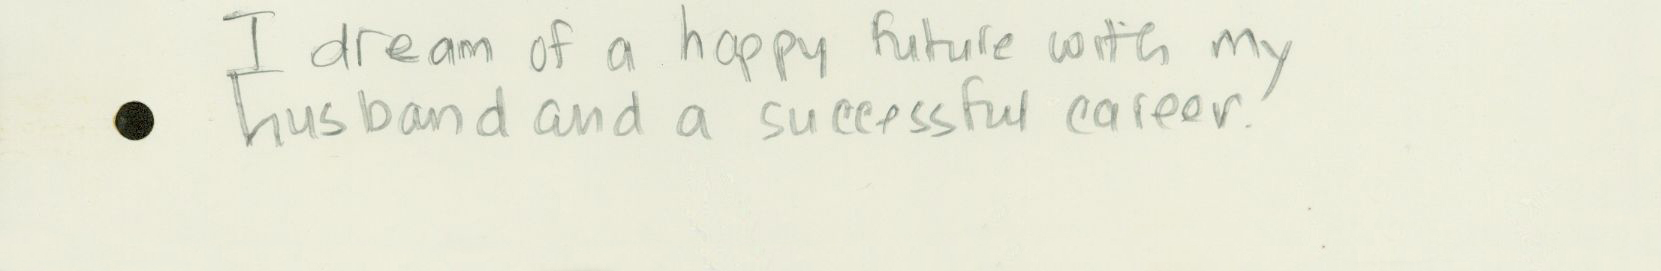 I dream of a happy future with my
husband and a successful career.